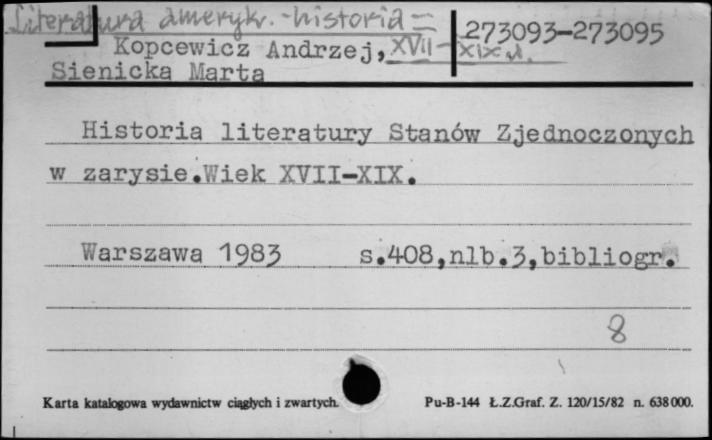 Literatura ameryk. - historia -
273093-273095
Kopcewicz Andrzej, XVII - XIX w.
Sienicka Marta
Historia literatury Stanów Zjednoczonych
w zarysie.Wiek XVII-XIX.
Warszawa 1983 s.408,nlb.3,bibliogr.
8
Karta katalogowa wydawnictw ciągłych i zwartych. Pu-B-144 Ł.Z.Graf. Z. 120/15/82 n. 638000.